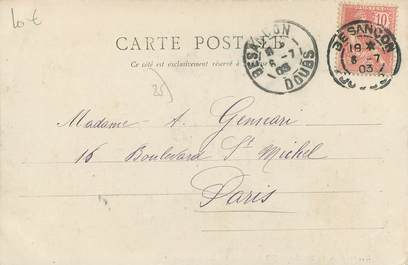 10 €
CARTE POSTALE
Ce côté est exclusivement réservé à
25
BESANÇON
6 -7
03
DOUBS
10
BESANÇON
19 *
6 -7
03
Madame A. Gennari
16 Boulevard St Michel
Paris